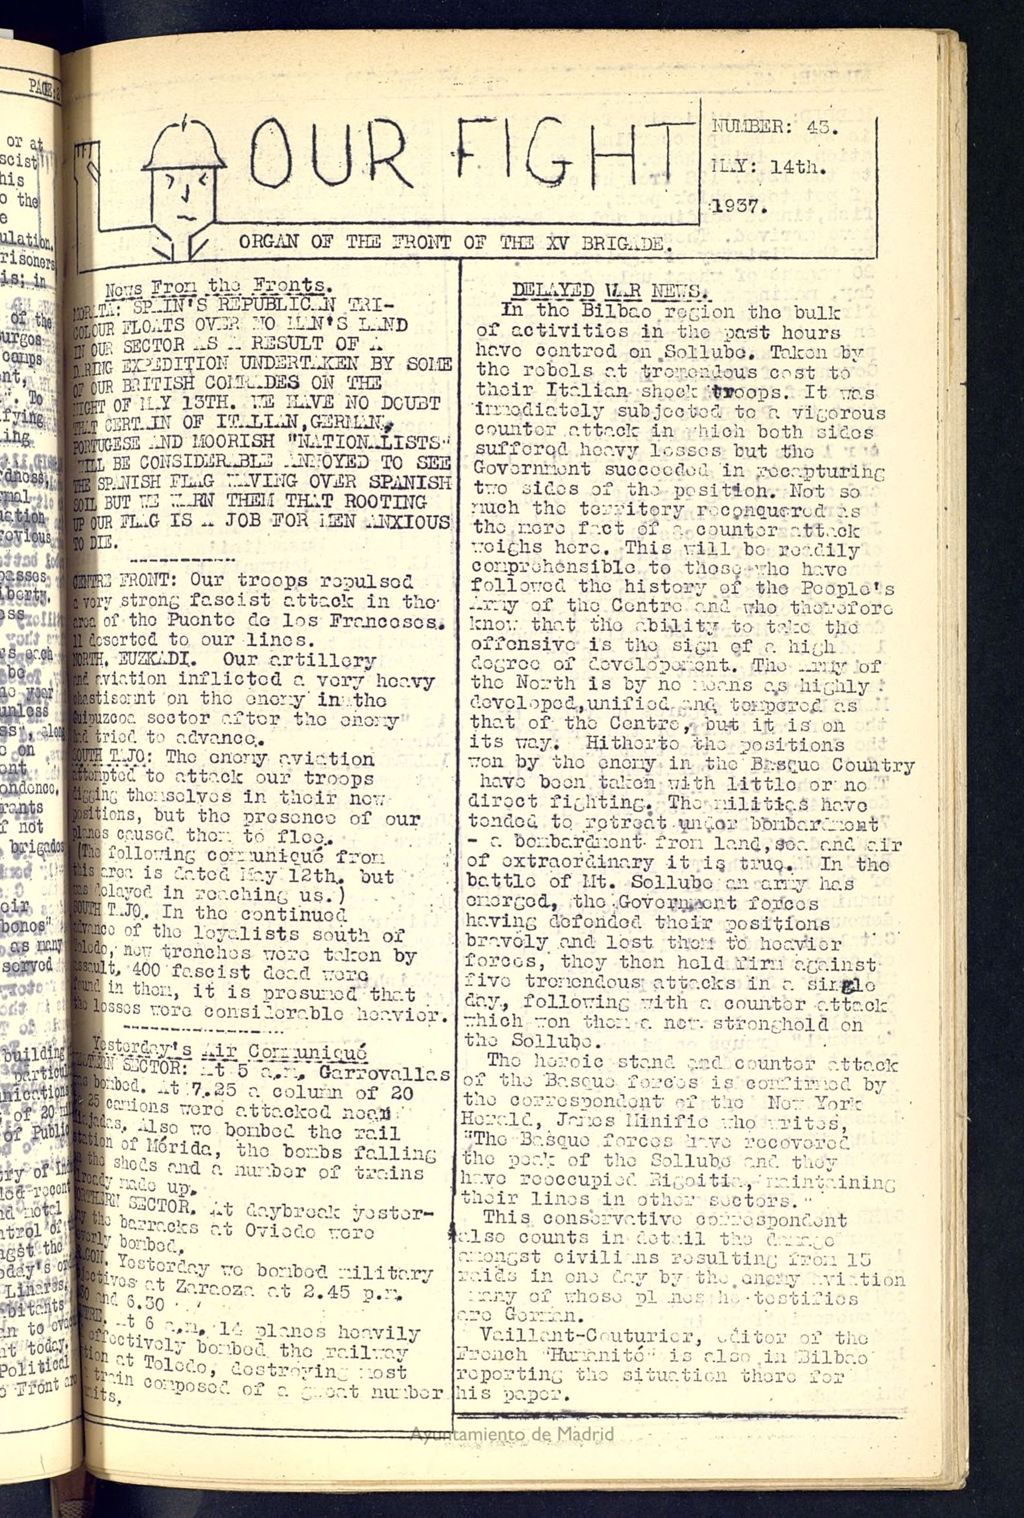 OUR FIGHT
NUMBER: 43.
MAY: 14th.
1937.
ORGAN OF THE FRONT OF THE XV BRIGADE.
News From the Fronts.
MORATA: SPAIN'S REPUBLICAN TRI-
COLOUR FLOATS OVER NO MAN'S LAND
IN OUR SECTOR AS A RESULT OF A
DARING EXPEDITION UNDERTAKEN BY SOME
OF OUR BRITISH COMRADES ON THE
NIGHT OF MAY 13TH. WE HAVE NO DOUBT
THAT CERTAIN OF ITALIAN, GERMAN,
PORTUGESE AND MOORISH "NATIONALISTS"
WILL BE CONSIDERABLE ANNOYED TO SEE
THE SPANISH FLAG WAVING OVER SPANISH
SOIL BUT WE WARN THEM THAT ROOTING
UP OUR FLAG IS A JOB FOR MEN ANXIOUS
TO DIE.
CENTRE FRONT: Our troops repulsed
a very strong fascist attack in the
area of the Puente de los Franceses.
11 deserted to our lines.
NORTH. EUZKADI. Our artillery
and aviation inflicted a very heavy
chastisemnt on the enemy in the
Guipuzcoa sector after the enemy
had tried to advance.
SOUTH TAJO: The enemy aviation
attempted to attack our troops
digging themselves in their new
positions, but the presence of our
planes caused them to flee.
(The following communiqué from
this area is dated May 12th. but
was delayed in reaching us.)
SOUTH TAJO. In the continued
advance of the loyalists south of
Toledo, new trenches were taken by
assault. 400 fascist dead were
found in them, it is presumed that
the losses were considerable heavier.
Yesterday's Air Communiqué
SECTOR: At 5 a.m. Garrovallas
was bombed. At 7.25 a column of 20
25 camions were attacked near
Also we bombed the rail
station of Mérida, the bombs falling
on the sheds and a number of trains
already made up.
NORTHERN SECTOR. At daybreak yester-
day the barracks at Oviedo were
bombed.
Yesterday we bombed military
objectives at Zaragoza at 2.45 p.m.
and 6.30
CENTRE. At 6 a.m. 14 planes heavily
effectively bombed the railway
station at Toledo, destroying most
train composed of a great number
DELAYED WAR NEWS.
In the Bilbao region the bulk
of activities in the past hours
have centred on Sollube. Taken by
the rebels at tremendous cost to
their Italian shock troops. It was
immediately subjected to a vigorous
counter attack in which both sides
suffered heavy losses but the
Government succeeded in recapturing
two sides of the position. Not so
much the territory reconquered as
the mere fact of a counter attack
weighs here. This will be readily
comprehensible to those who have
followed the history of the People's
Army of the Centre and who therefore
know that the ability to take the
offensive is the sign of a high
degree of development. The Army of
the North is by no means as highly
developed, unified and tempered as
that of the Centre, but it is on
its way. Hitherto the positions
won by the enemy in the Basque Country
have been taken with little or no
direct fighting. The militias have
tended to retreat under bombardment
- a bombardment from land, sea and air
of extraordinary it is true. In the
battle of Mt. Sollube an army has
emerged, the Government forces
having defended their positions
bravely and lost them to heavier
forces, they then held firm against
five tremendous attacks in a single
day, following with a counter attack
which won them a new stronghold on
the Sollube.
The heroic stand and counter attack
of the Basque forces is confirmed by
the correspondent of the New York
Herald, James Minifie who writes,
"The Basque forces have recovered
the peak of the Sollube and they
have reoccupied Rigoitia, maintaining
their lines in other sectors."
This conservative correspondent
also counts in detail the damage
amongst civilians resulting from 15
raids in one day by the enemy aviation
many of whose planes he testifies
are German.
Vaillant-Couturier, editor of the
French "Humanité" is also in Bilbao
reporting the situation there for
his paper.
Ayuntamiento de Madrid